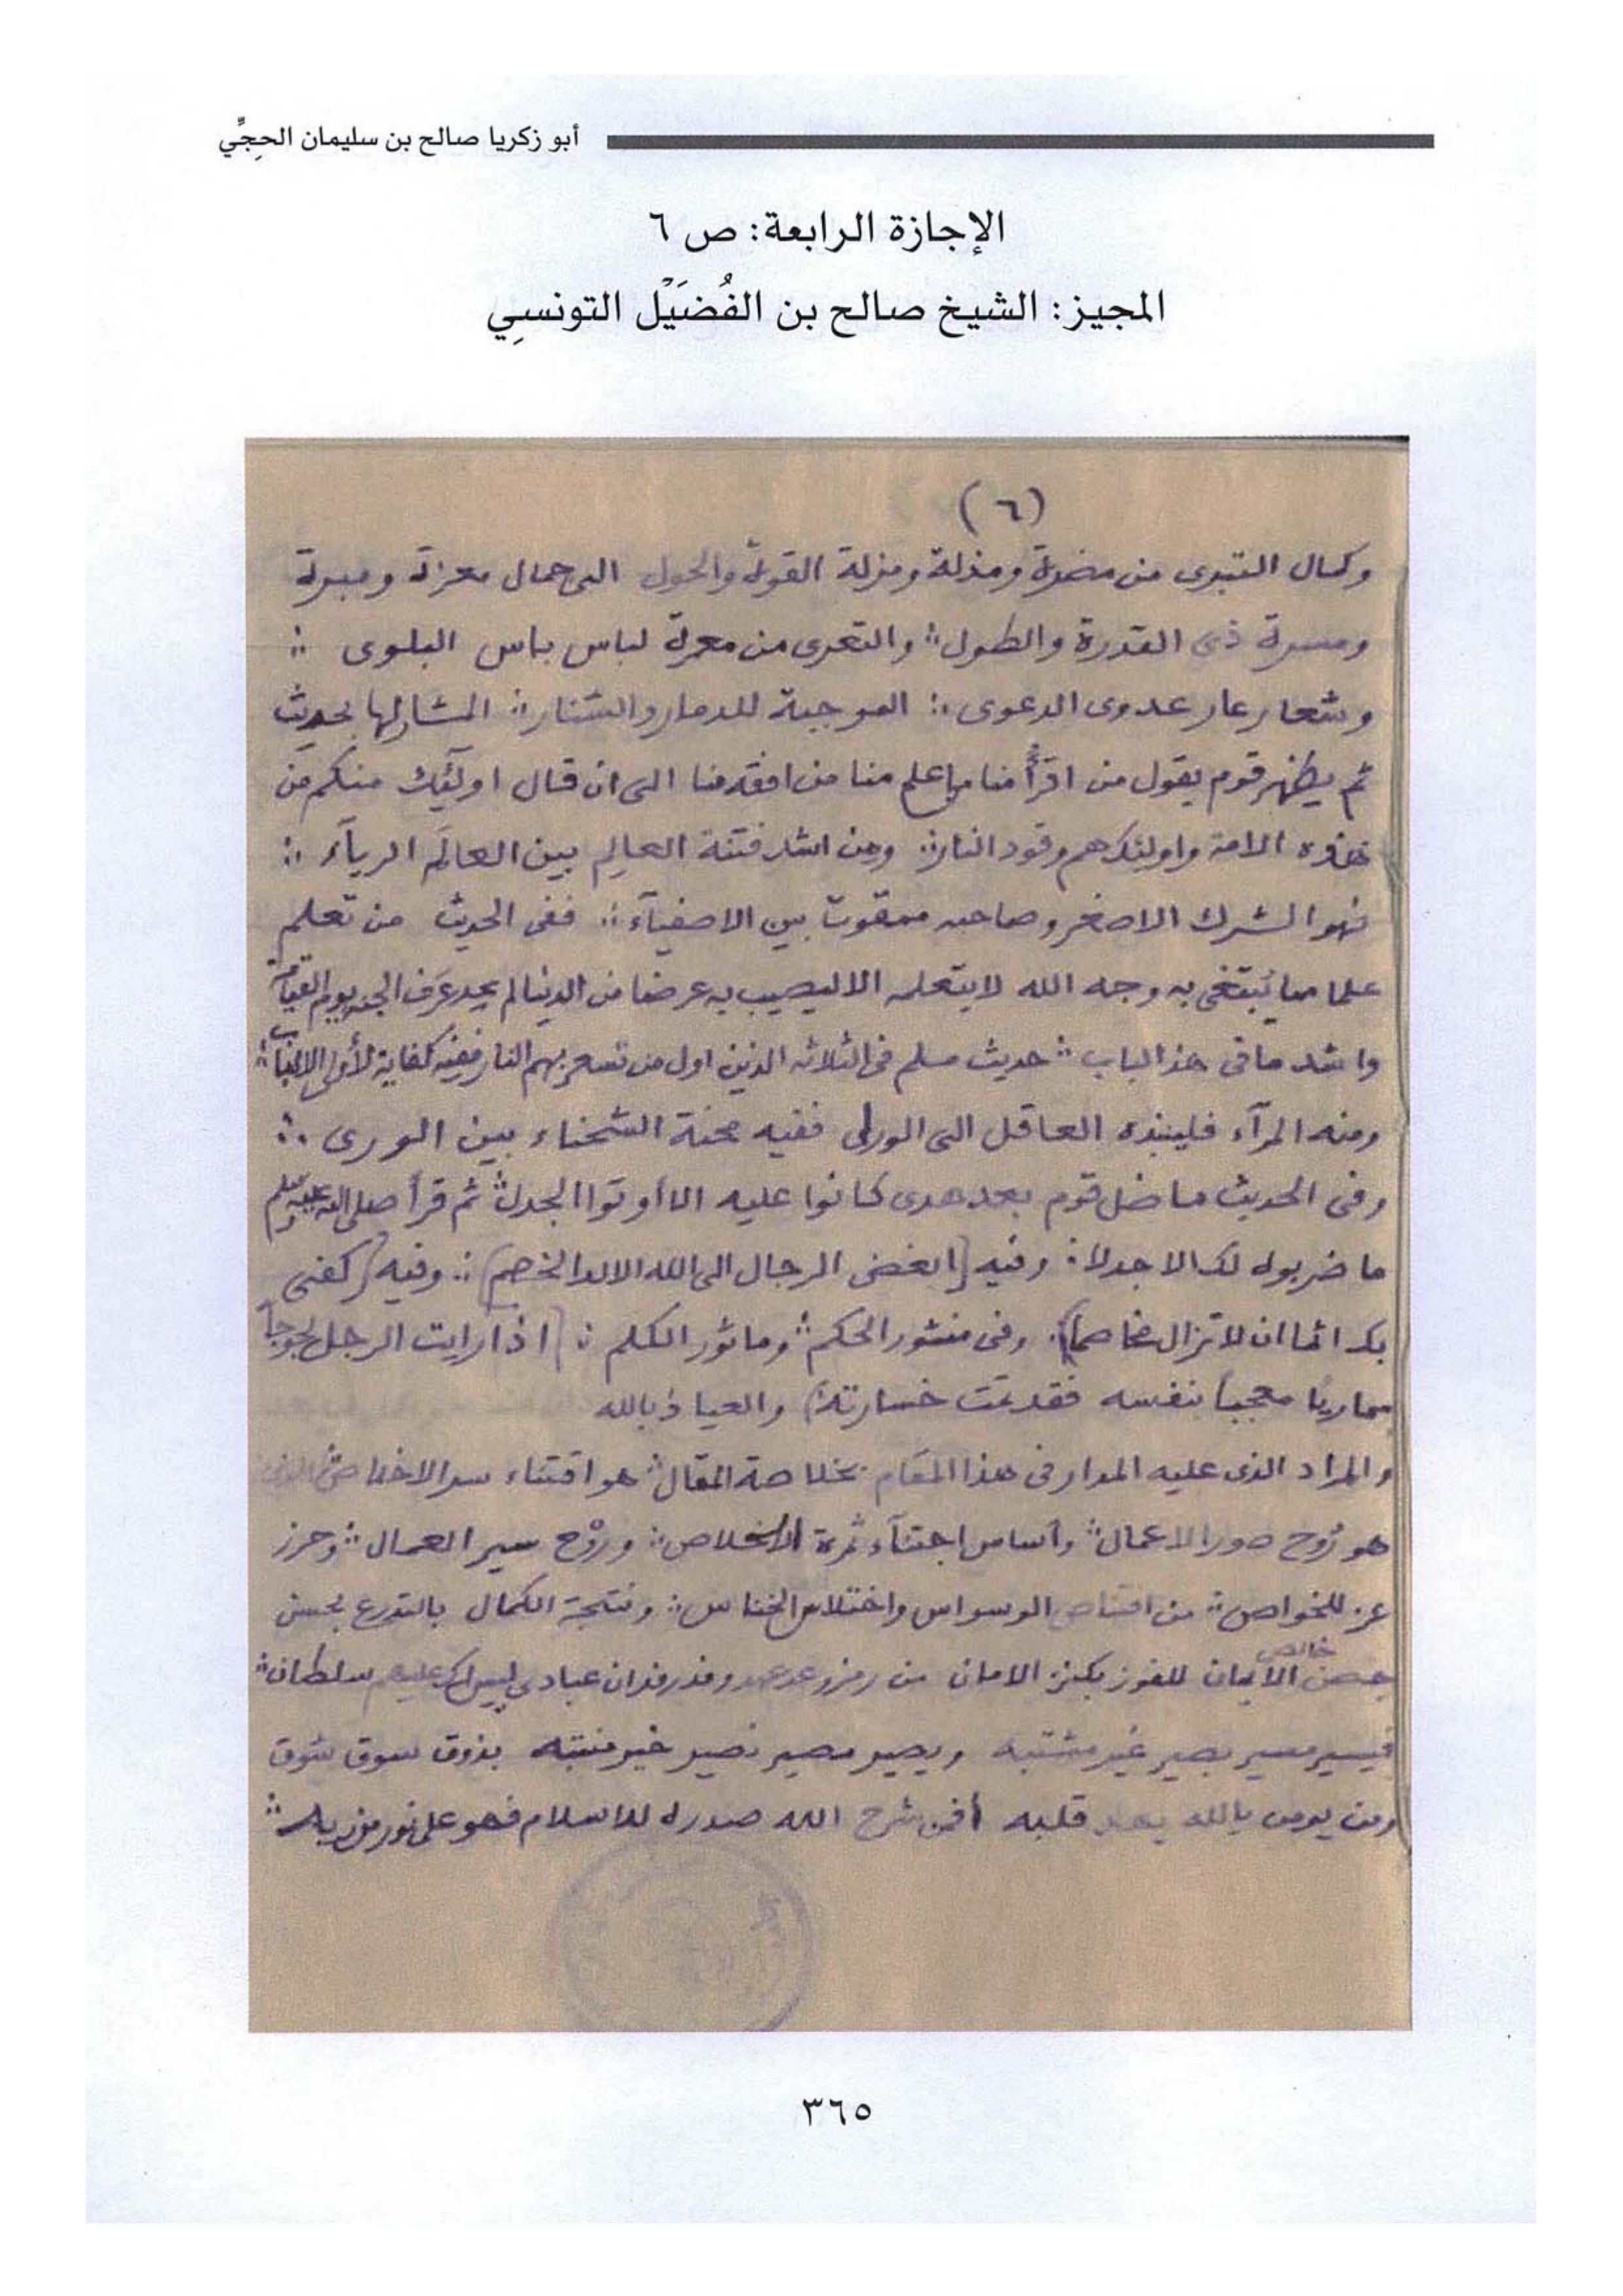 أبو زكريا صالح بن سليمان الحِجِّي
الإجازة الرابعة: ص ٦
المجيز: الشيخ صالح بن الفُضَيْل التونسِي
(٦)
وكمال التبرى من مضرة ومذلة ومزلة القوة والحول الى جمال معزة ومبرة
ومسرة ذى القدرة والطول ؞ والتعرى من معرة لباس باس البلوى ؞
وشعار عار عدوى الدعوى ؞ الموجبة للدمار والشنار ؞ المشار لها بحديث
ثم يظهر قوم يقول من اقرأ منا من اعلم منا من افقه منا الى ان قال اولئك منكم من
هذه الامة واولئك هم وقود النار ؞ ومن اشد فتنة العالِم بين العالَم الرياء ؞
فهو الشرك الاصغر وصاحبه ممقوت بين الاصفياء ؞ ففى الحديث من تعلم
علما مما يُبتغى به وجه الله لا يتعلمه الا ليصيب به عرضا من الدنيا لم يجد عَرف الجنة يوم القيامة
واشد ما فى هذا الباب ؞ حديث مسلم فى الثلاثة الذين اول من تسعر بهم النار ففيه كفاية لأولى الالباب ؞
ومنه المرآء فلينبذه العاقل الى الورى ففيه محنة الشحناء بين الورى ؞
وفى الحديث ما ضل قوم بعد هدى كانوا عليه الا أوتوا الجدل ؞ ثم قرأ صلى الله عليه وسلم
ما ضربوه لك الا جدلا ؞ وفيه [ابغض الرجال الى الله الالد الخصم] ؞ وفيه [كفى
بك اثما ان لا تزال مخاصماً] ؞ وفى منثور الحكم ؞ وماثور الكلم ؞ [اذا رايت الرجل لجوجاً
مماريا معجباً بنفسه فقد تمت خسارته] والعياذ بالله
والمراد الذى عليه المدار فى هذا المقام بخلاصة المقال ؞ هو اقتناء سر الاخلاص الذى
هو رُوح صور الاعمال ؞ وأساس اجتنآء ثمرة الاخلاص ؞ ورَوْح سير العمال ؞ وحرز
عز للخواص ؞ من اقتناص الوسواس واختلاس الخناس ؞ ونتيجة الكمال بالتدرع بحسن
حصن خالص الايمان للفوز بكنز الامان من رمز وعد ان عبادى ليس لك عليهم سلطان ؞
فيسير مسير بصير غير مشتبه ويصير مصير نصير خير منتبه بذوق سوق شوق
ومن يومن بالله يهد قلبه أفمن شرح الله صدره للاسلام فهو على نور من ربه ؞
٣٦٥